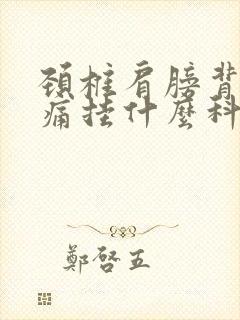 頸椎肩膀背
痛挂什麼科
鄭啓五